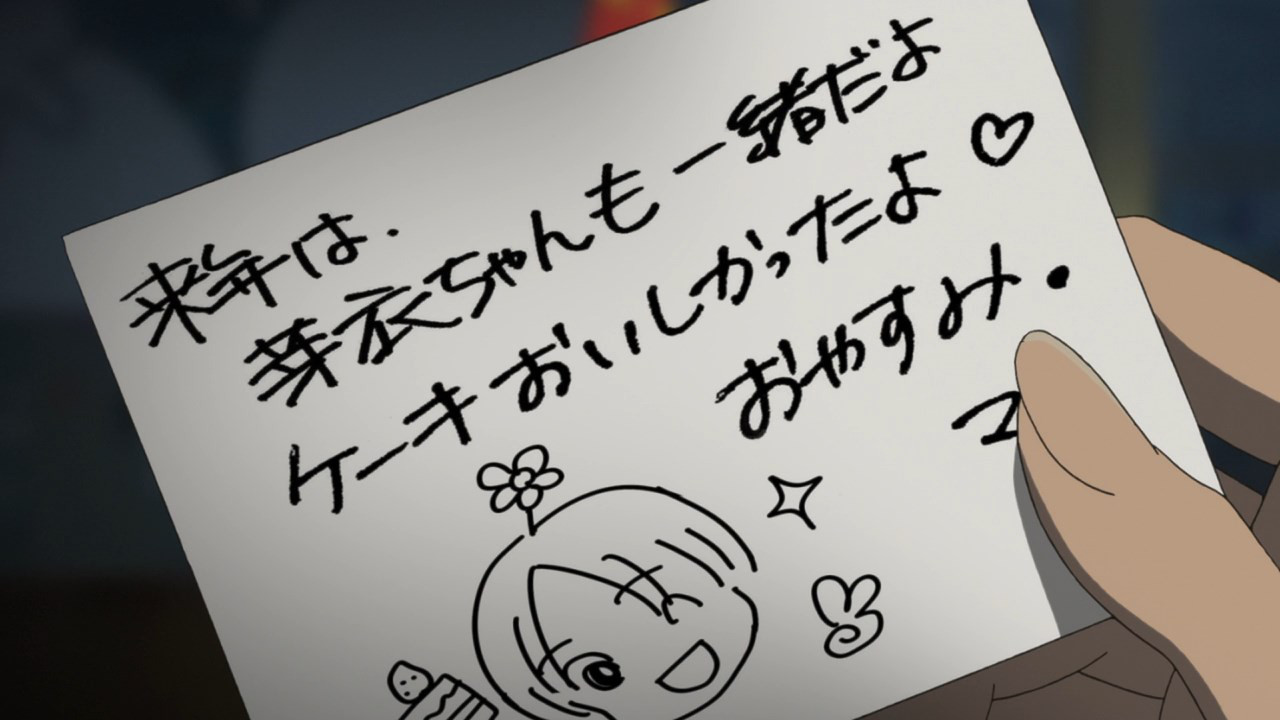 来年は、
芽衣ちゃんも一緒だよ
ケーキおいしかったよ♡
おやすみ。
マ